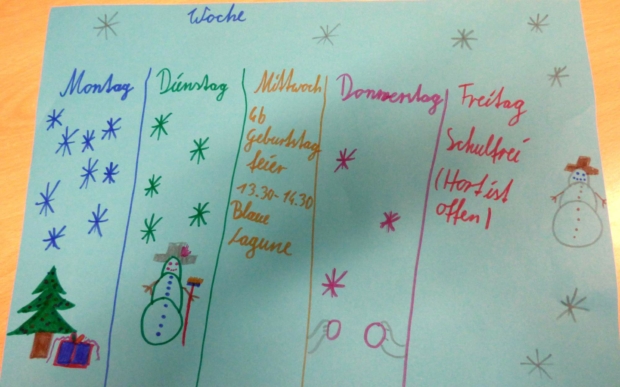 Woche
Montag
Dienstag
Mittwoch
Gb
Geburtstag
feier
13.30-14.30
Blaue
Lagune
Donnerstag
Freitag
Schulfrei
(Hort ist
offen)